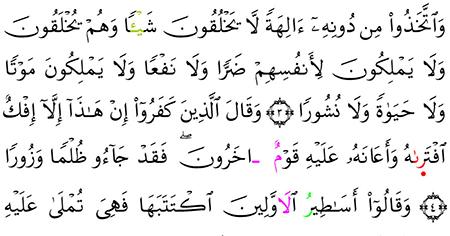 وَٱتَّخَذُوا۟ مِن دُونِهِۦٓ ءَالِهَةً لَّا يَخْلُقُونَ شَيْـًٔا وَهُمْ يُخْلَقُونَ
وَلَا يَمْلِكُونَ لِأَنفُسِهِمْ ضَرًّا وَلَا نَفْعًا وَلَا يَمْلِكُونَ مَوْتًا
وَلَا حَيَوٰةً وَلَا نُشُورًا ﴿٣﴾ وَقَالَ ٱلَّذِينَ كَفَرُوٓا۟ إِنْ هَـٰذَآ إِلَّآ إِفْكٌ
ٱفْتَرِىٰهُ وَأَعَانَهُۥ عَلَيْهِ قَوْمٌ ـاخَرُونَ ۖ فَقَدْ جَآءُو ظُلْمًا وَزُورًا
﴿٤﴾ وَقَالُوٓا۟ أَسَـٰطِيرُ ٱلَاوَّلِينَ ٱكْتَتَبَهَا فَهِىَ تُمْلَىٰ عَلَيْهِ